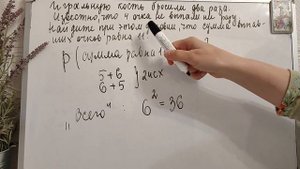 Игральную кость бросили два раза.
Известно, что 4 очка не выпали ни разу.
Найдите при этом условии, что сумма выпав-
ших очков равна 11
P (сумма равна 1
5+6
6+5 ] 2 исх
"Всего" : 6² = 36